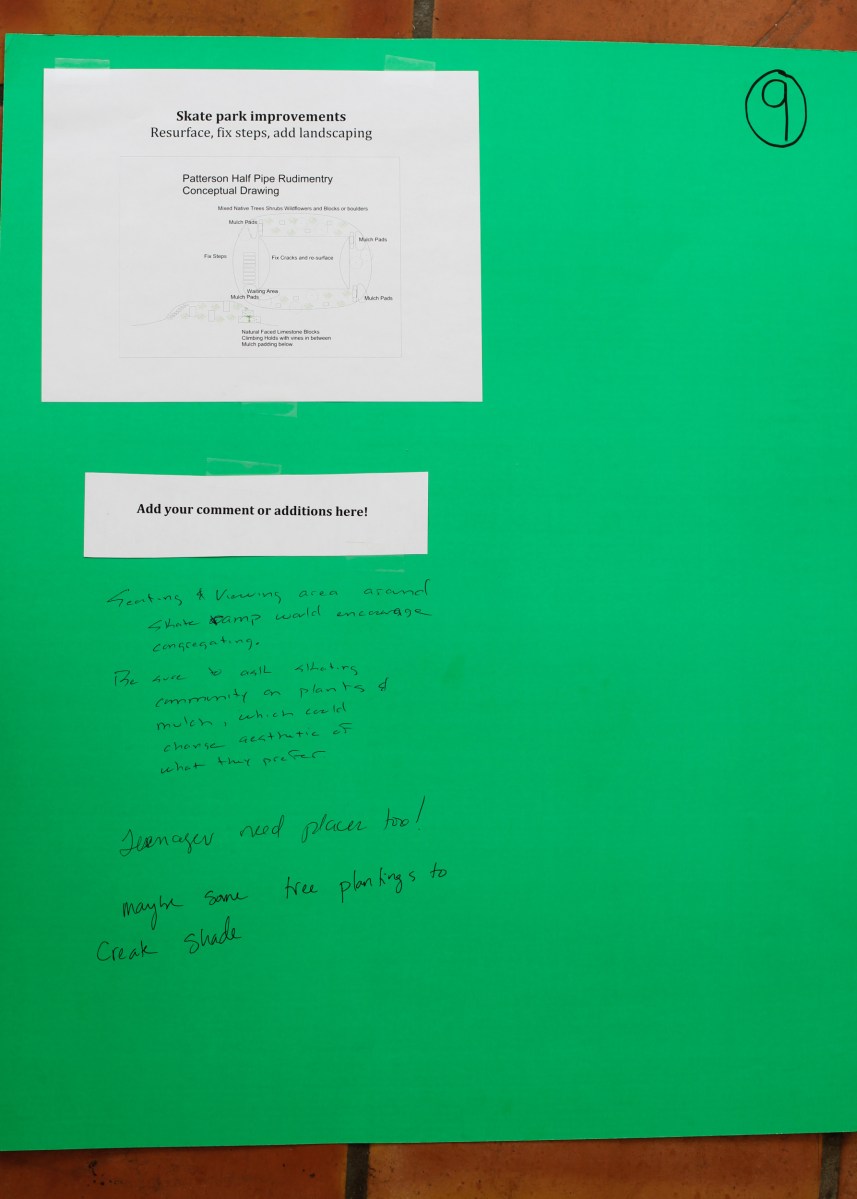 9
Skate park improvements
Resurface, fix steps, add landscaping
Patterson Half Pipe Rudimentry
Conceptual Drawing
Mixed Native Trees Shrubs Wildflowers and Blocks or boulders
Mulch Pads
Mulch Pads
Fix Steps
Fix Cracks and re-surface
Waiting Area
Mulch Pads
Mulch Pads
Natural Faced Limestone Blocks
Climbing Holds with vines in between
Mulch padding below.
Add your comment or additions here!
Seating & Viewing area around
skate ramp would encourage
congregating.
Be sure to ask skating
community on plants &
mulch, which could
change aesthetic of
what they prefer
Teenager need places too!
maybe some tree plantings to
Creak shade